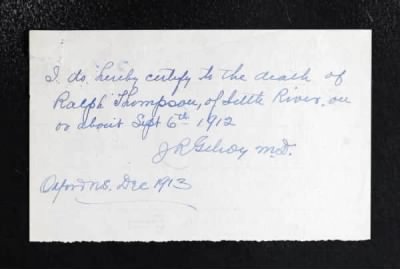 I do hereby certify to the death of
Ralph Thompson, of Little River, on
or about Sept 6th 1912
J R Gilroy M.D.
Oxford N.S. Dec 1913